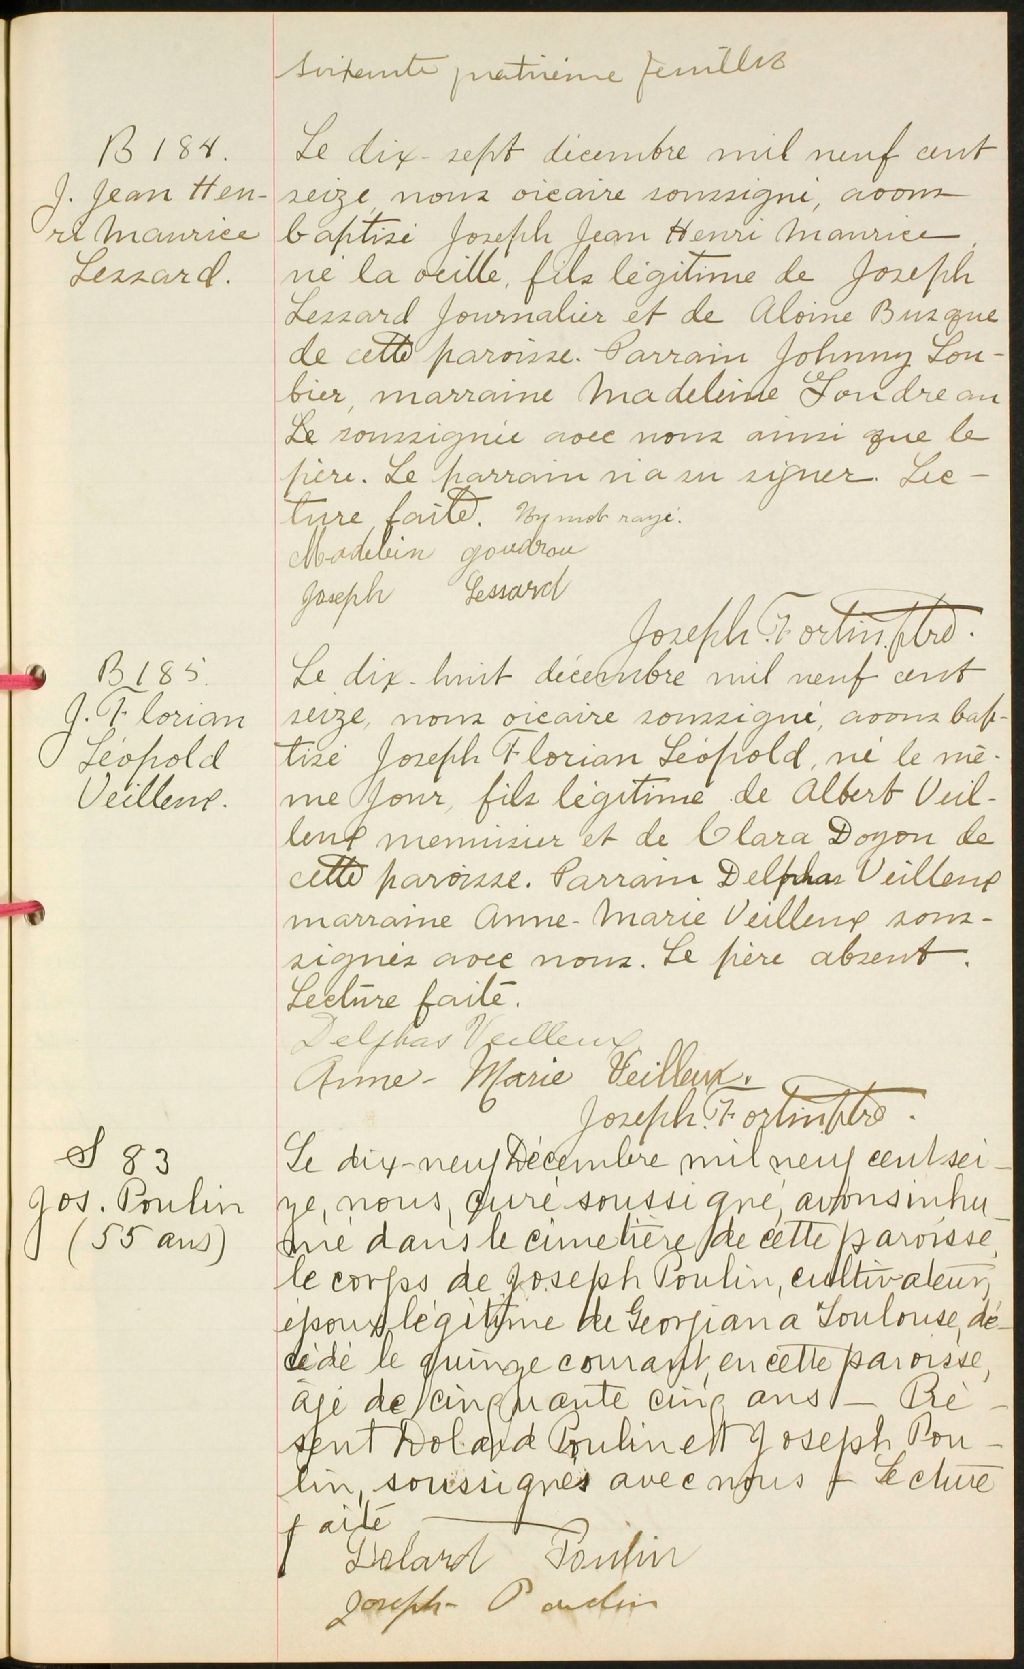 soixante quatrième feuillet
B 184.
J. Jean Hen-
ri Maurice
Lessard.
Le dix-sept décembre mil neuf cent
seize, nous vicaire soussigné, avons
baptisé Joseph Jean Henri Maurice,
né la veille, fils légitime de Joseph
Lessard journalier et de Aloine Busque
de cette paroisse. Parrain Johnny Lou-
bier, marraine Madeleine Goudreau
Le soussignée avec nous ainsi que le
père. Le parrain n'a su signer. Lec-
ture faite. mot rayé.
Madelein goudrou
Joseph Lessard
Joseph Fortin, ptre.
B 185.
J. Florian
Léopold
Veilleux.
Le dix-huit décembre mil neuf cent
seize, nous vicaire soussigné, avons bap-
tisé Joseph Florian Léopold, né le mê-
me jour, fils légitime de Albert Veil-
leux menuisier et de Clara Doyon de
cette paroisse. Parrain Delphas Veilleux
marraine Anne-Marie Veilleux sous-
signés avec nous. Le père absent.
Lecture faite.
Delphas Veilleux
Anne-Marie Veilleux.
Joseph Fortin ptre.
S 83
Jos. Poulin
(55 ans)
Le dix-neuf Décembre mil neuf cent sei-
ze, nous, curé soussigné, avons inhu-
mé dans le cimetière de cette paroisse,
le corps de Joseph Poulin, cultivateur,
époux légitime de Georgiana Toulouse, dé-
cédé le quinze courant, en cette paroisse,
âgé de cinquante cinq ans — Pré-
sent Dolard Poulin et Joseph Pou-
lin, soussignés avec nous — Lecture
faite
Dolard Poulin
Joseph Poulin